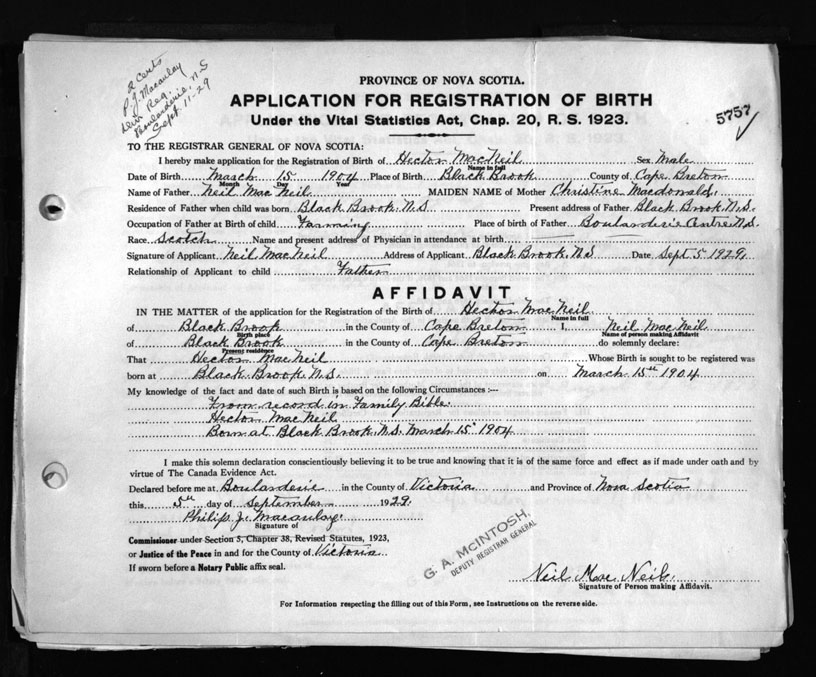 2 Certs
P. J. Macaulay
Div. Reg.
Boularderie, N.S
Sept. 11-29
PROVINCE OF NOVA SCOTIA.
APPLICATION FOR REGISTRATION OF BIRTH
5757
Under the Vital Statistics Act, Chap. 20, R. S. 1923.
TO THE REGISTRAR GENERAL OF NOVA SCOTIA:
I hereby make application for the Registration of Birth of Hector MacNeil Sex Male
Name in full
Date of Birth March 15 1904 Place of Birth Black Brook County of Cape Breton
Month Day Year
Name of Father Neil Mac Neil MAIDEN NAME of Mother Christine Macdonald.
Residence of Father when child was born Black Brook N.S Present address of Father Black Brook N.S.
Occupation of Father at Birth of child Farming Place of birth of Father Boularderie Centre N.S.
Race Scotch Name and present address of Physician in attendance at birth
Signature of Applicant Neil MacNeil Address of Applicant Black Brook. N.S Date Sept 5 1929
Relationship of Applicant to child Father
AFFIDAVIT
IN THE MATTER of the application for the Registration of the Birth of Hector MacNeil
Name in full
of Black Brook in the County of Cape Breton I, Neil MacNeil
Birth place Name of person making Affidavit
of Black Brook in the County of Cape Breton do solemnly declare:
Present residence
That Hector MacNeil Whose Birth is sought to be registered was
born at Black Brook. N.S. on March 15th 1904
My knowledge of the fact and date of such Birth is based on the following Circumstances :—
From record in Family Bible.
Hector MacNeil
Born at Black Brook. N.S. March 15 1904
I make this solemn declaration conscientiously believing it to be true and knowing that it is of the same force and effect as if made under oath and by
virtue of The Canada Evidence Act.
Declared before me at Boularderie in the County of Victoria and Province of Nova Scotia
this 5th day of September 1929.
Philip J. Macaulay.
Signature of
Commissioner under Section 5, Chapter 38, Revised Statutes, 1923,
or Justice of the Peace in and for the County of Victoria
If sworn before a Notary Public affix seal.
G. A. McINTOSH,
DEPUTY REGISTRAR GENERAL
Neil Mac Neil
Signature of Person making Affidavit.
For Information respecting the filling out of this Form, see Instructions on the reverse side.